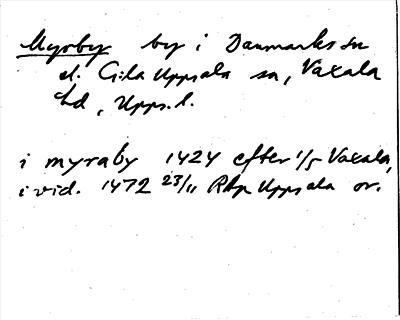 Myrby by i Danmarks sn
el. G:la Uppsala sn, Vaxala
hd, Upps. l.
i myraby 1424 efter 1/5 Vaxala,
i vid. 1472 23/11 Rbp Uppsala or.